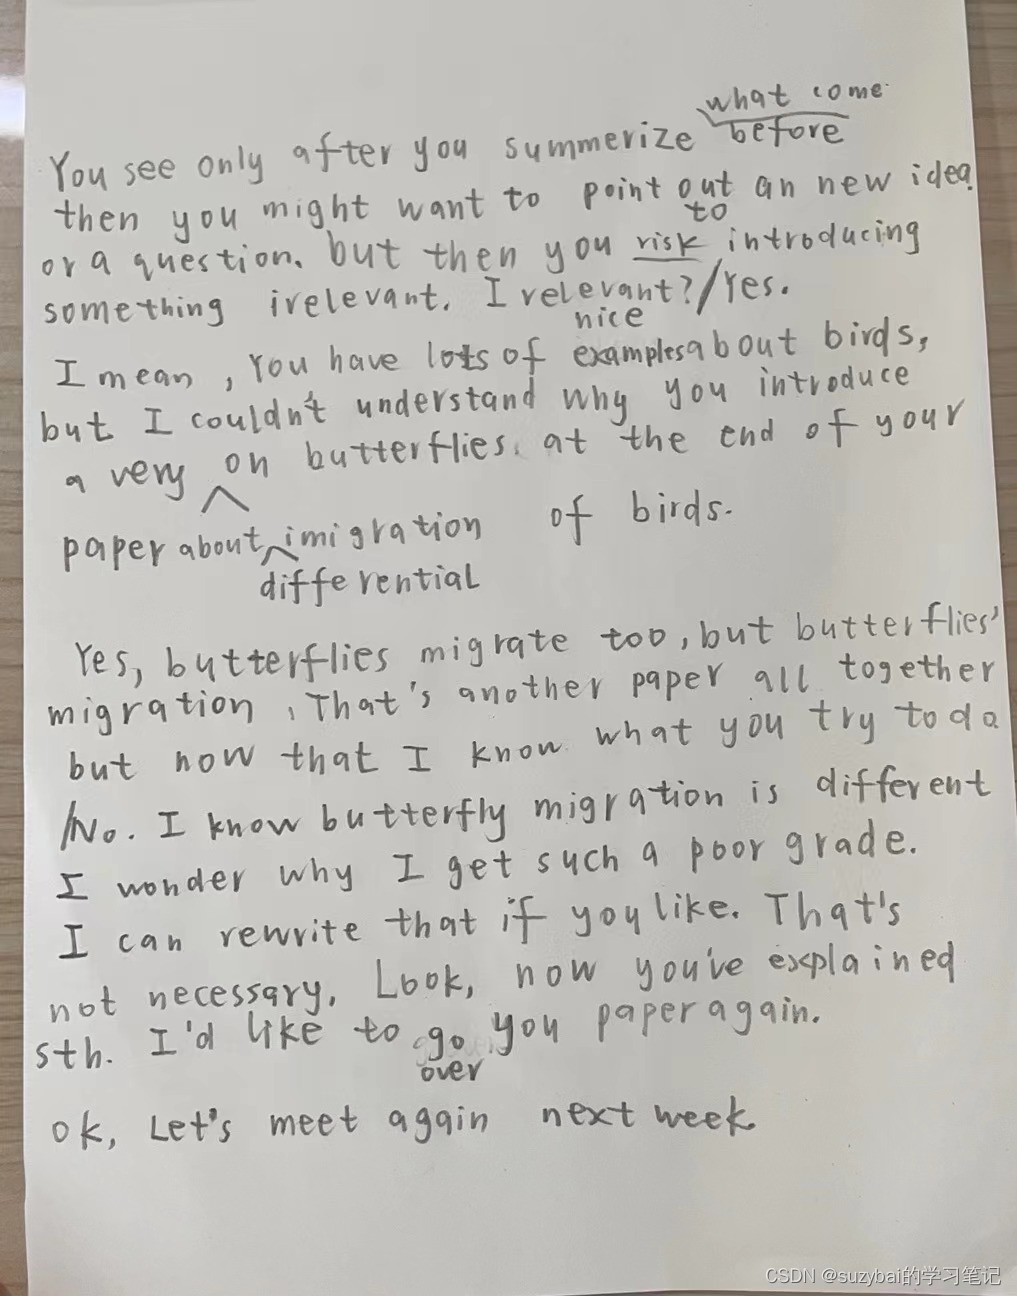 what come
You see only after you summerize before
then you might want to point out an new idea
to
or a question. but then you risk introducing
something irelevant. Irelevant?/Yes.
nice
I mean, You have lots of examples about birds,
but I couldn't understand why you introduce
a very on butterflies. at the end of your
paper about imigration of birds.
differential
Yes, butterflies migrate too, but butterflies'
migration, That's another paper all together
but now that I know what you try to do
/No. I know butterfly migration is different
I wonder why I get such a poor grade.
I can rewrite that if you like. That's
not necessary. Look, now you've explained
sth. I'd like to go you paper again.
over
ok, Let's meet again next week
CSDN @suzybai的学习笔记